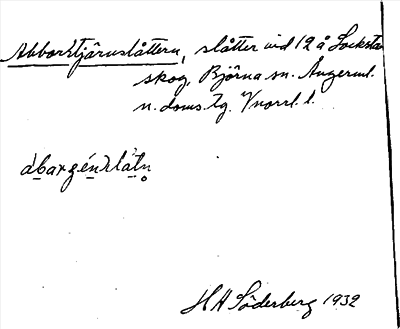 Abborrtjärnslåttern, slåtter vid 12 å Locksta
skog, Björna sn. Ångerml.
n. doms. tg. Vnorrl. l.
abarʒénslåtn̥
H A Söderberg 1932